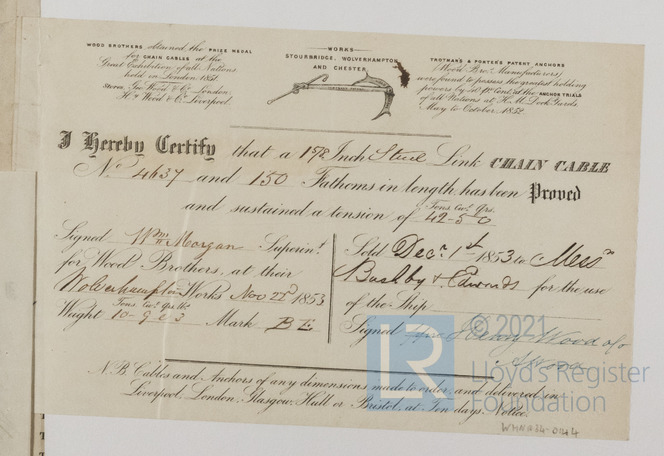 WOOD BROTHERS obtained the PRIZE MEDAL
for CHAIN CABLES at the
Great Exhibition of all Nations
held in London 1851.
Stores, Geo. Wood & Co. London.
H. Wood & Co. Liverpool.
WORKS
STOURBRIDGE, WOLVERHAMPTON
AND CHESTER
TROTMANS & PORTER'S PATENT ANCHORS
(Wood Bros. Manufacturers)
were found to possess the greatest holding
powers by Pr. Cent. at the ANCHOR TRIALS
of all Nations at H. M. Dock Yards
May to October, 1852.
I Hereby Certify that a 1 5/8 Inch Stud Link CHAIN CABLE
No. 4637 and 150 Fathoms in length has been Proved
and sustained a tension of Tons Cwt. Qrs.
42-5-0
Signed Wm. Morgan Superint.
for Wood Brothers, at their
Wolverhampton Works Nov 22nd 1853
Tons Cwt. Qrs. lb.
Weight 10-9-2-3 Mark BE
Sold Decr. 1st 1853 to Messrs
Bushby & Edwards for the use
of the Ship
Signed Henry Wood & Co
N.B. Cables and Anchors of any dimensions made to order, and delivered in
Liverpool, London, Glasgow, Hull or Bristol, at Ten days Notice.
LR
© 2021
Lloyd's Register
Foundation